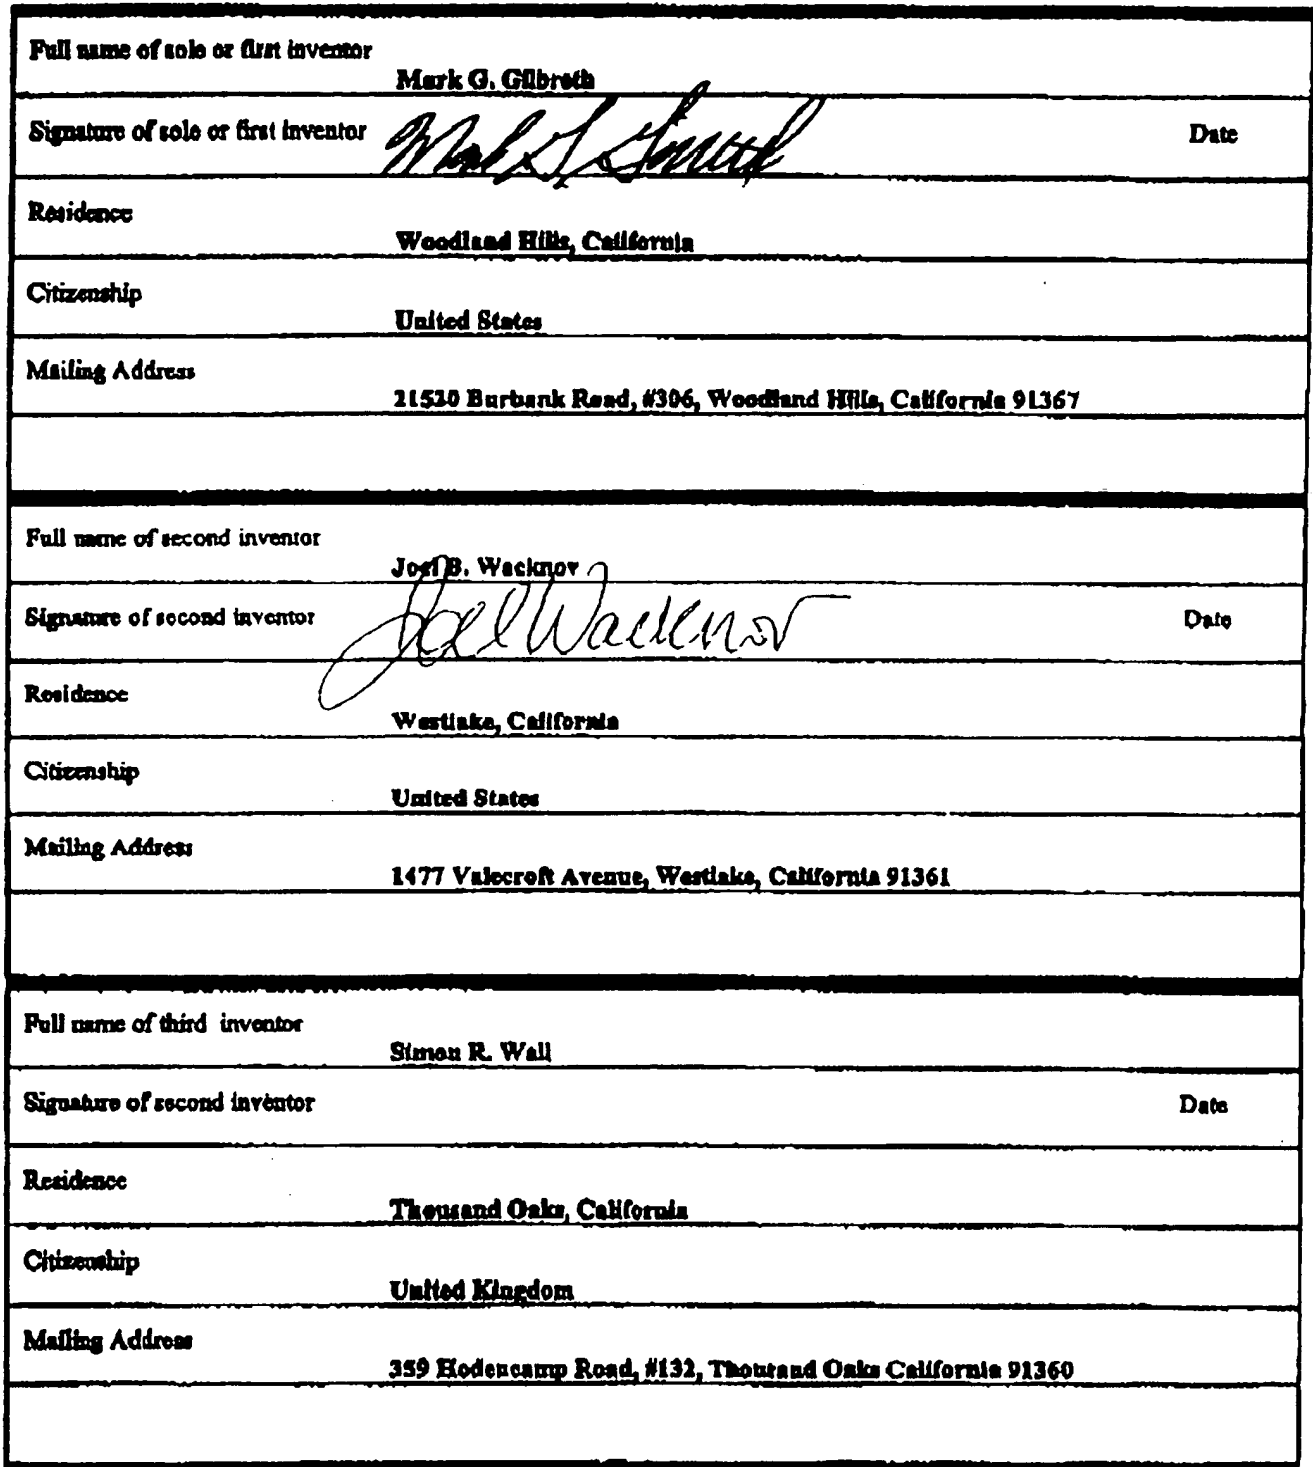 Full name of sole or first inventor
Mark G. Gilbreth
Signature of sole or first inventor Date
Residence
Woodland Hills, California
Citizenship
United States
Mailing Address
21520 Burbank Road, #306, Woodland Hills, California 91367
Full name of second inventor
Joel B. Wacknov
Signature of second inventor Joel Wacknov Date
Residence
Westlake, California
Citizenship
United States
Mailing Address
1477 Valecroft Avenue, Westlake, California 91361
Full name of third inventor
Simon R. Wall
Signature of second inventor Date
Residence
Thousand Oaks, California
Citizenship
United Kingdom
Mailing Address
359 Hodencamp Road, #132, Thousand Oaks California 91360